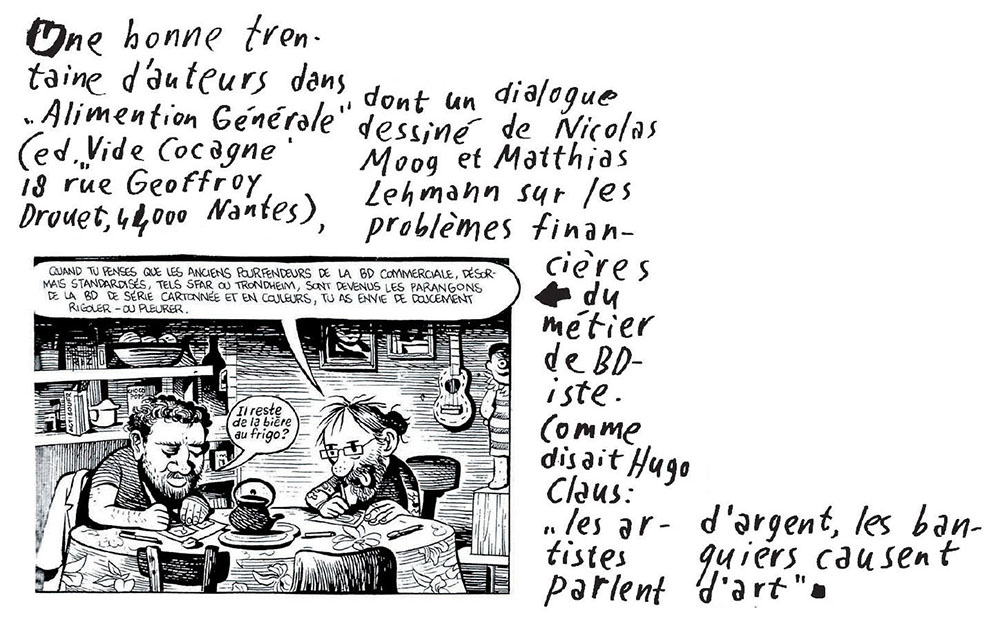 Une bonne tren-
taine d'auteurs dans
"Alimention Générale"
(ed. "Vide Cocagne'
18 rue Geoffroy
Drouet, 44000 Nantes),
dont un dialogue
dessiné de Nicolas
Moog et Matthias
Lehmann sur les
problèmes finan-
cières
du
métier
de BD-
iste.
Comme
disait Hugo
Claus:
"les ar-
tistes
parlent
d'argent, les ban-
quiers causent
d'art"
QUAND TU PENSES QUE LES ANCIENS POURFENDEURS DE LA BD COMMERCIALE, DÉSOR-
MAIS STANDARDISÉS, TELS SFAR OU TRONDHEIM, SONT DEVENUS LES PARANGONS
DE LA BD DE SÉRIE CARTONNÉE ET EN COULEURS, TU AS ENVIE DE DOUCEMENT
RIGOLER – OU PLEURER.
Il reste
de la bière
au frigo?